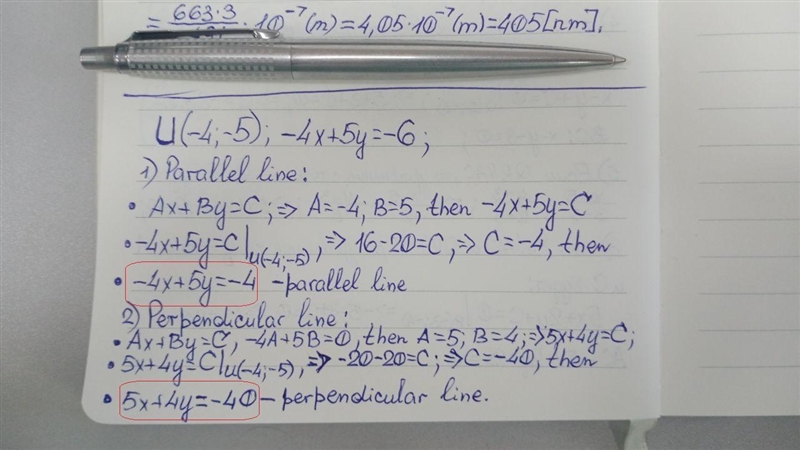 = 663·3 / · 10⁻⁷(m) = 4,05·10⁻⁷(m) = 405[nm].
U(-4;-5); -4x+5y=-6;
1) Parallel line:
• Ax+By=C; => A=-4; B=5, then -4x+5y=C
• -4x+5y=C|U(-4;-5), => 16-20=C, => C=-4, then
• -4x+5y=-4 - parallel line
2) Perpendicular line:
• Ax+By=C, -4A+5B=0, then A=5; B=4; => 5x+4y=C;
• 5x+4y=C|U(-4;-5), => -20-20=C; => C=-40, then
• 5x+4y=-40 - perpendicular line.